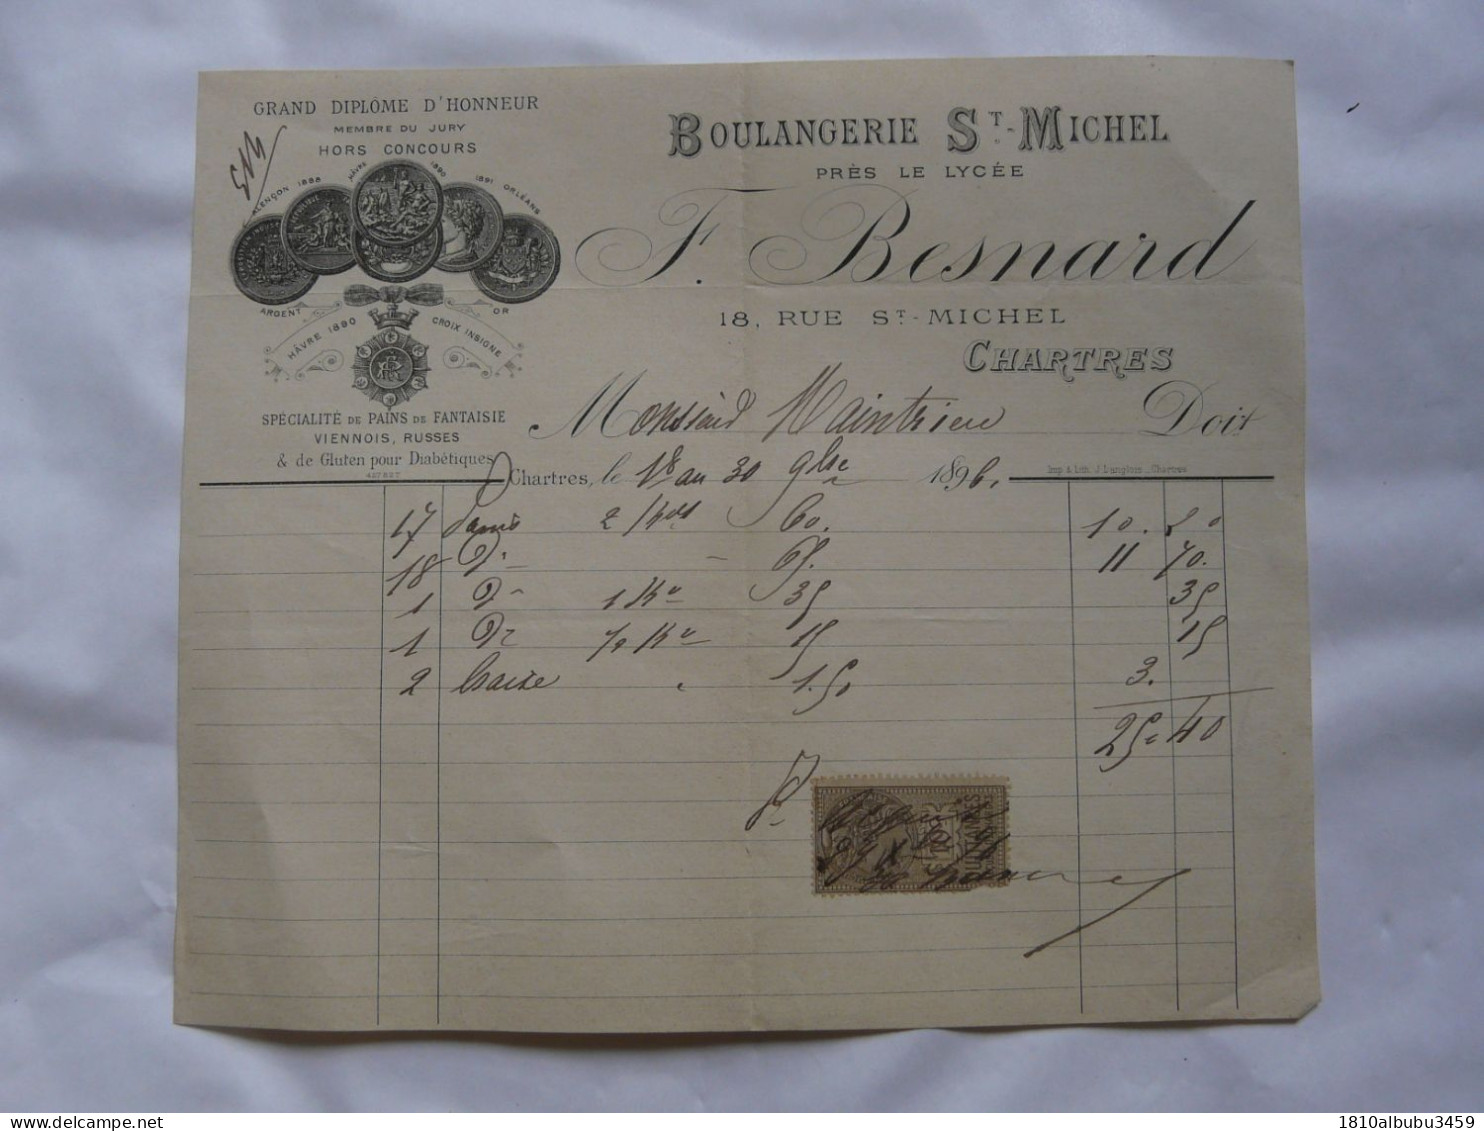 GRAND DIPLÔME D'HONNEUR
MEMBRE DU JURY
HORS CONCOURS
ALENÇON 1898 HÂVRE 1890 1891 ORLÉANS
ARGENT OR
HÂVRE 1890 CROIX INSIGNE
SPÉCIALITÉ DE PAINS DE FANTAISIE
VIENNOIS, RUSSES
& de Gluten pour Diabétiques
BOULANGERIE ST-MICHEL
PRÈS LE LYCÉE
F. Besnard
18, RUE ST-MICHEL
CHARTRES
Monsieur Maintrieu Doit
Chartres, le 18 au 30 9bre 1896.
Imp & Lith J. Langlois _ Chartres
17 pains 2 Kos 60. 10. 20
18 Do - 65. 11 70.
1 Do 1 Ko 35 35
1 Do 1/2 Ko 15 15
2 1.50 3.
25. 40
10
QUITTANCES
1810albubu3459